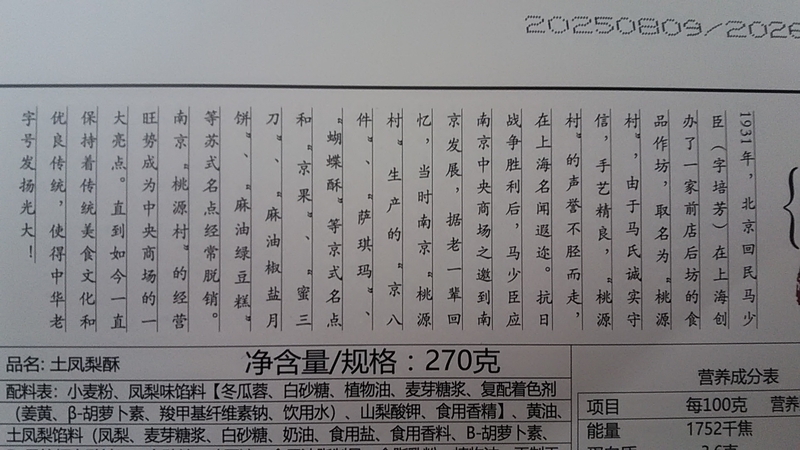 20250809/2026
1931年，北京回民马少
臣（字培芳）在上海创
办了一家前店后坊的食
品作坊，取名为“桃源
村”，由于马氏诚实守
信，手艺精良，“桃源
村”的声誉不胫而走，
在上海名闻遐迩。抗日
战争胜利后，马少臣应
南京中央商场之邀到南
京发展，据老一辈回
忆，当时南京“桃源
村”生产的“京八
件”、“萨琪玛”、
“蝴蝶酥”等京式名点
和“京果”、“蜜三
刀”、“麻油椒盐月
饼”、“麻油绿豆糕”
等苏式名点经常脱销。
南京“桃源村”的经营
旺势成为中央商场的一
大亮点。直到如今一直
保持着传统美食文化和
优良传统，使得中华老
字号发扬光大！
品名: 土凤梨酥
净含量/规格：270克
配料表：小麦粉、凤梨味馅料【冬瓜蓉、白砂糖、植物油、麦芽糖浆、复配着色剂
（姜黄、β-胡萝卜素、羧甲基纤维素钠、饮用水）、山梨酸钾、食用香精】、黄油、
土凤梨馅料（凤梨、麦芽糖浆、白砂糖、奶油、食用盐、食用香料、B-胡萝卜素、
营养成分表
项目 每100克 营养
能量 1752千焦